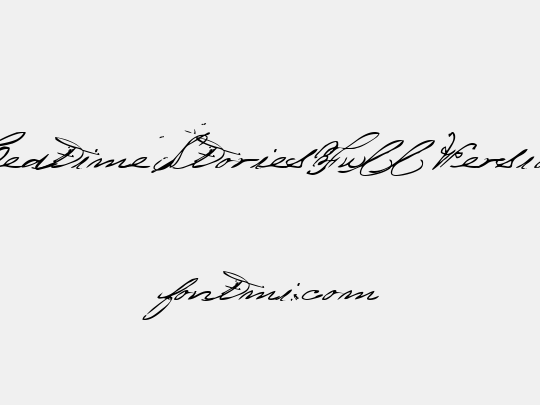 Bedtime Stories Full Versio
fontmi.com